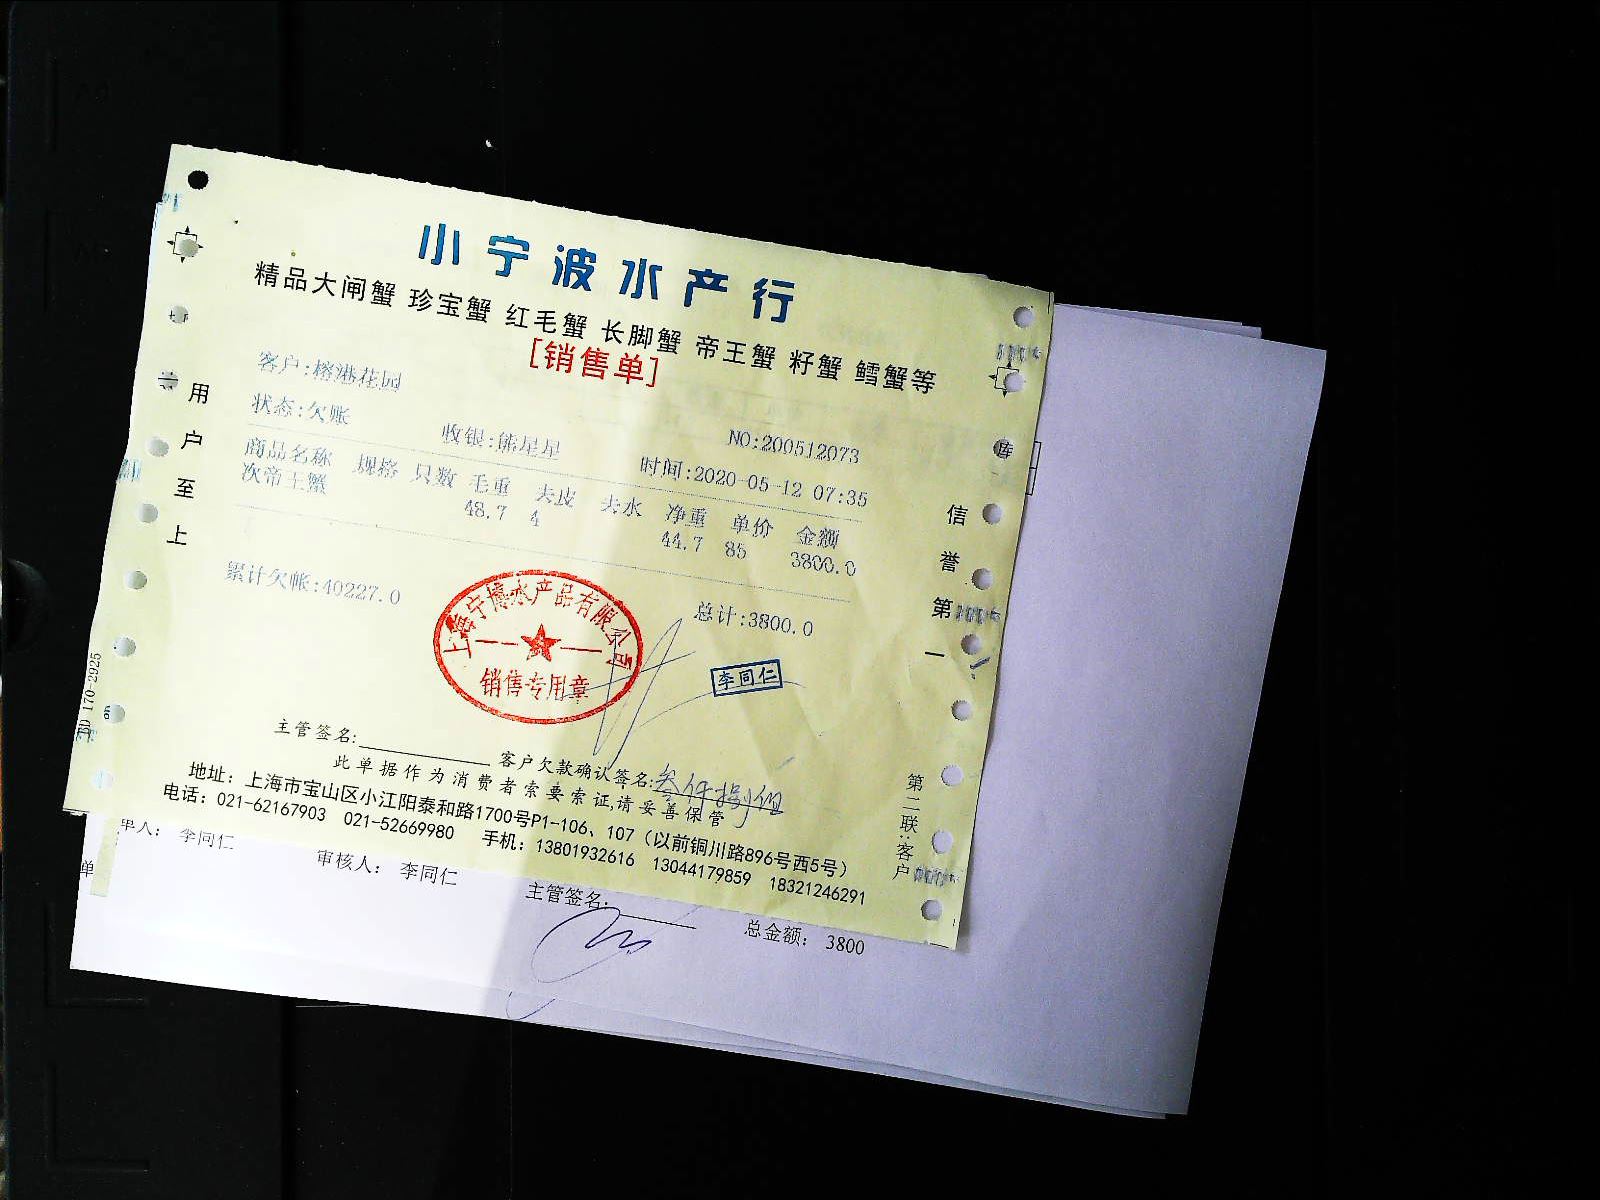 小宁波水产行
精品大闸蟹 珍宝蟹 红毛蟹 长脚蟹 帝王蟹 籽蟹 鳕蟹等
[销售单]
客户:榕港花园
状态:欠账
收银:熊星星
NO:200512073
时间:2020-05-12 07:35
商品名称 规格 只数 毛重 去皮 去水 净重 单价 金额
次帝王蟹 48.7 4 44.7 85 3800.0
累计欠帐:40227.0
总计:3800.0
上海宁博水产品有限公司
销售专用章
李同仁
主管签名:
客户欠款确认签名:叁仟捌佰
此单据作为消费者索要索证,请妥善保管
地址：上海市宝山区小江阳泰和路1700号P1-106、107（以前铜川路896号西5号）
电话：021-62167903 021-52669980 手机：13801932616 13044179859 18321246291
用户至上
信誉第一
第二联:客户
170-2925
单人： 李同仁
审核人： 李同仁
主管签名:
总金额： 3800
单
库